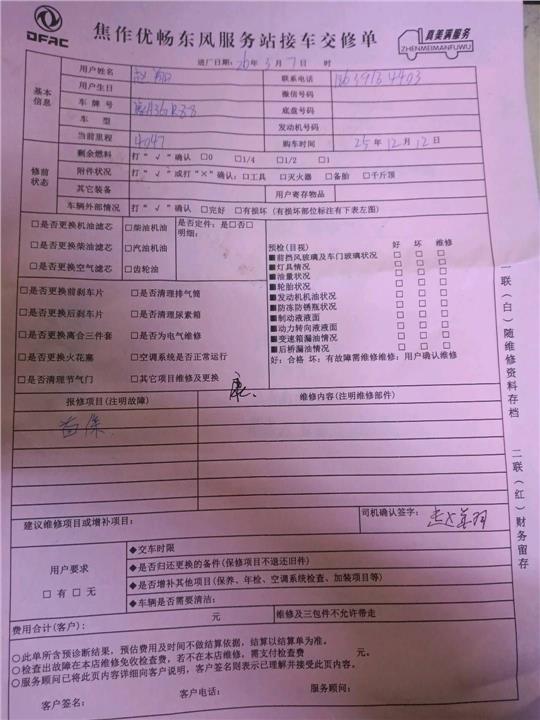 DFAC
焦作优畅东风服务站接车交修单
真美满服务
ZHENMEIMANFUWU
进厂日期：26年3月7日 时
基本信息
用户姓名
联系电话
用户生日
微信号码
车牌号
底盘号码
车型
发动机号码
当前里程 4047
购车时间 25年12月12日
修前状态
剩余燃料 打“√”确认 □0 □1/4 □1/2 □1
附件状况 打“√”或打“×”确认：□工具 □灭火器 □备胎 □千斤顶
其它装备
用户寄存物品
车辆外部情况 打“√”确认 □完好 □有损坏（有损坏部位标注有下表左图）
□是否更换机油滤芯 □柴油机油 是否定件：是□否□
明细：
□是否更换柴油滤芯 □汽油机油
□是否更换空气滤芯 □齿轮油
□是否更换前刹车片 □是否清理排气筒
□是否更换后刹车片 □是否清理尿素箱
□是否更换离合三件套 □是否为电气维修
□是否更换火花塞 □空调系统是否正常运行
□是否清理节气门 □其它项目维修及更换
预检（目视） 好 坏 维修
■前挡风玻璃及车门玻璃状况 □ □ □
■灯具情况 □ □ □
■油量状况 □ □ □
■轮胎状况 □ □ □
■发动机机油状况 □ □ □
■防冻防锈瓶状况 □ □ □
■制动液液面 □ □ □
■动力转向液液面 □ □ □
■变速箱漏油情况 □ □ □
■后桥漏油情况 □ □ □
好：合格 坏：有故障需维修维修：用户确认维修
康.
报修项目（注明故障）
维修内容（注明维修部件）
首保
建议维修项目或增补项目：
司机确认签字：
用户要求
□有 □无
◆交车时限
◆是否归还更换的备件（保修项目不退还旧件）
◆是否增补其他项目（保养、年检、空调系统检查、加装项目等）
◆车辆是否需要清洁：
费用合计（客户）： 元
维修及三包件不允许带走
○此单所含预诊断结果，预估费用及时间不做结算依据，结算以结算单为准。
○检查出故障在本店维修免收检查费，若不在本店维修，需支付检查费 元。
○服务顾问已将此页内容详细向客户说明，客户签名则表示已理解并接受此页内容。
客户签名： 客户电话： 服务顾问：
一联（白）随维修资料存档
二联（红）财务留存